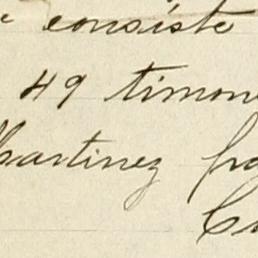 consiste
49 timon
Martinez